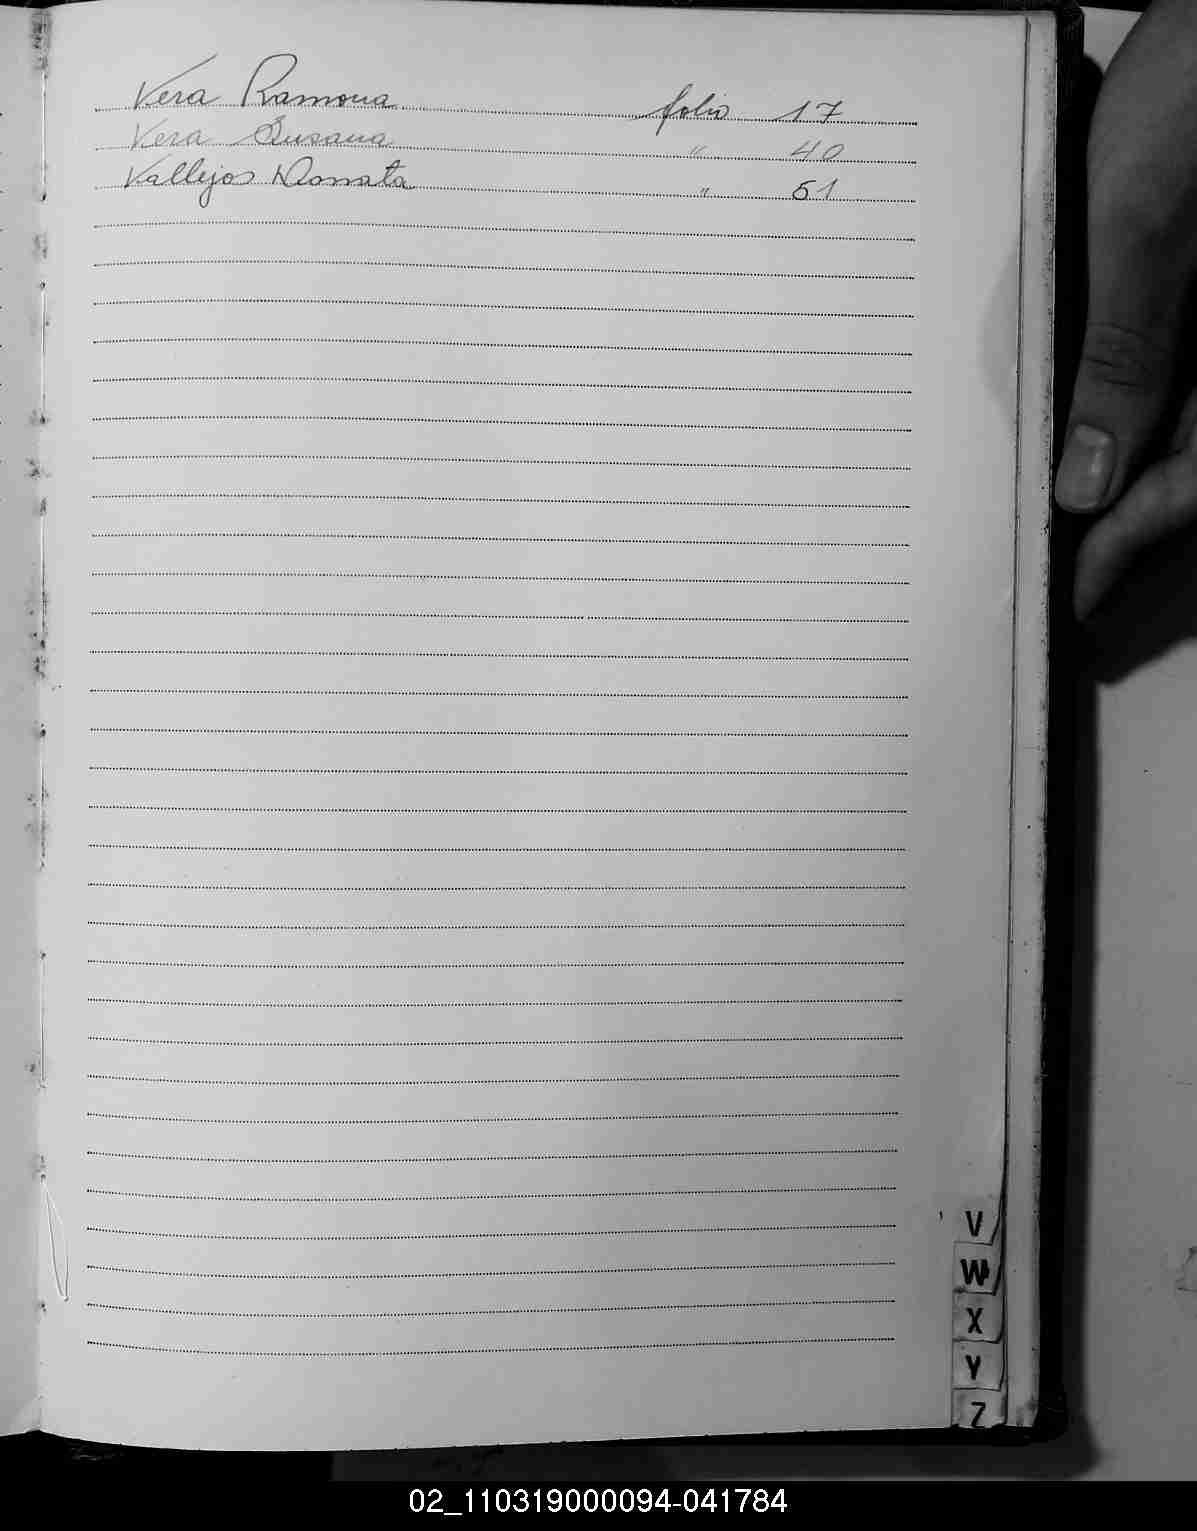 Vera Ramona folio 17
Vera Susana " 40
Vallejos Donata " 51
V
W
X
Y
Z
02_110319000094-041784